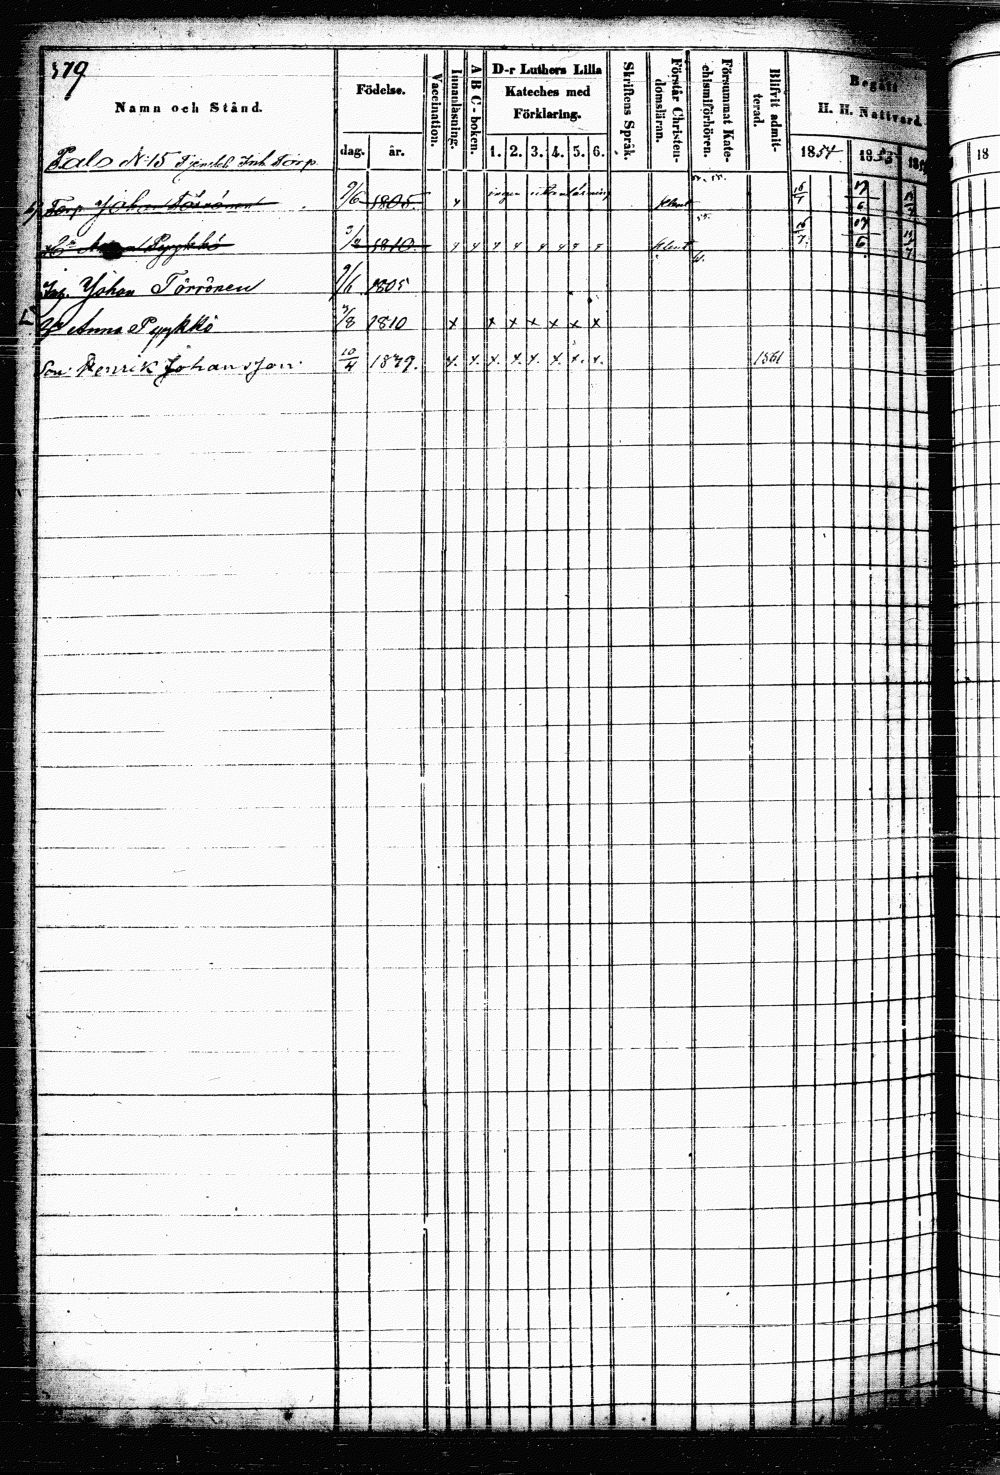 579
Namn och Stånd.
Födelse.
dag.
år.
Vaccination.
Innanläsning.
A B C-boken.
D-r Luthers Lilla
Kateches med
Förklaring.
1. 2. 3. 4. 5. 6.
Skriftens Språk.
Förstår Christen-
domsläran.
Försummat Kate-
chismiförhören.
Blifvit admit-
terad.
Begått
H. H. Nattvard.
1854 1855
18
Palo N:15
Torp. Johan Törrönen 9/6 1805.
Anna Pyykkö 1810.
Johan Törrönen 9/6 1805
Anna Pyykkö 1810 x x x x x x x
Son Henrik Johansson 10/4 1839. x. x. x. x. x. x. x. x. 1861